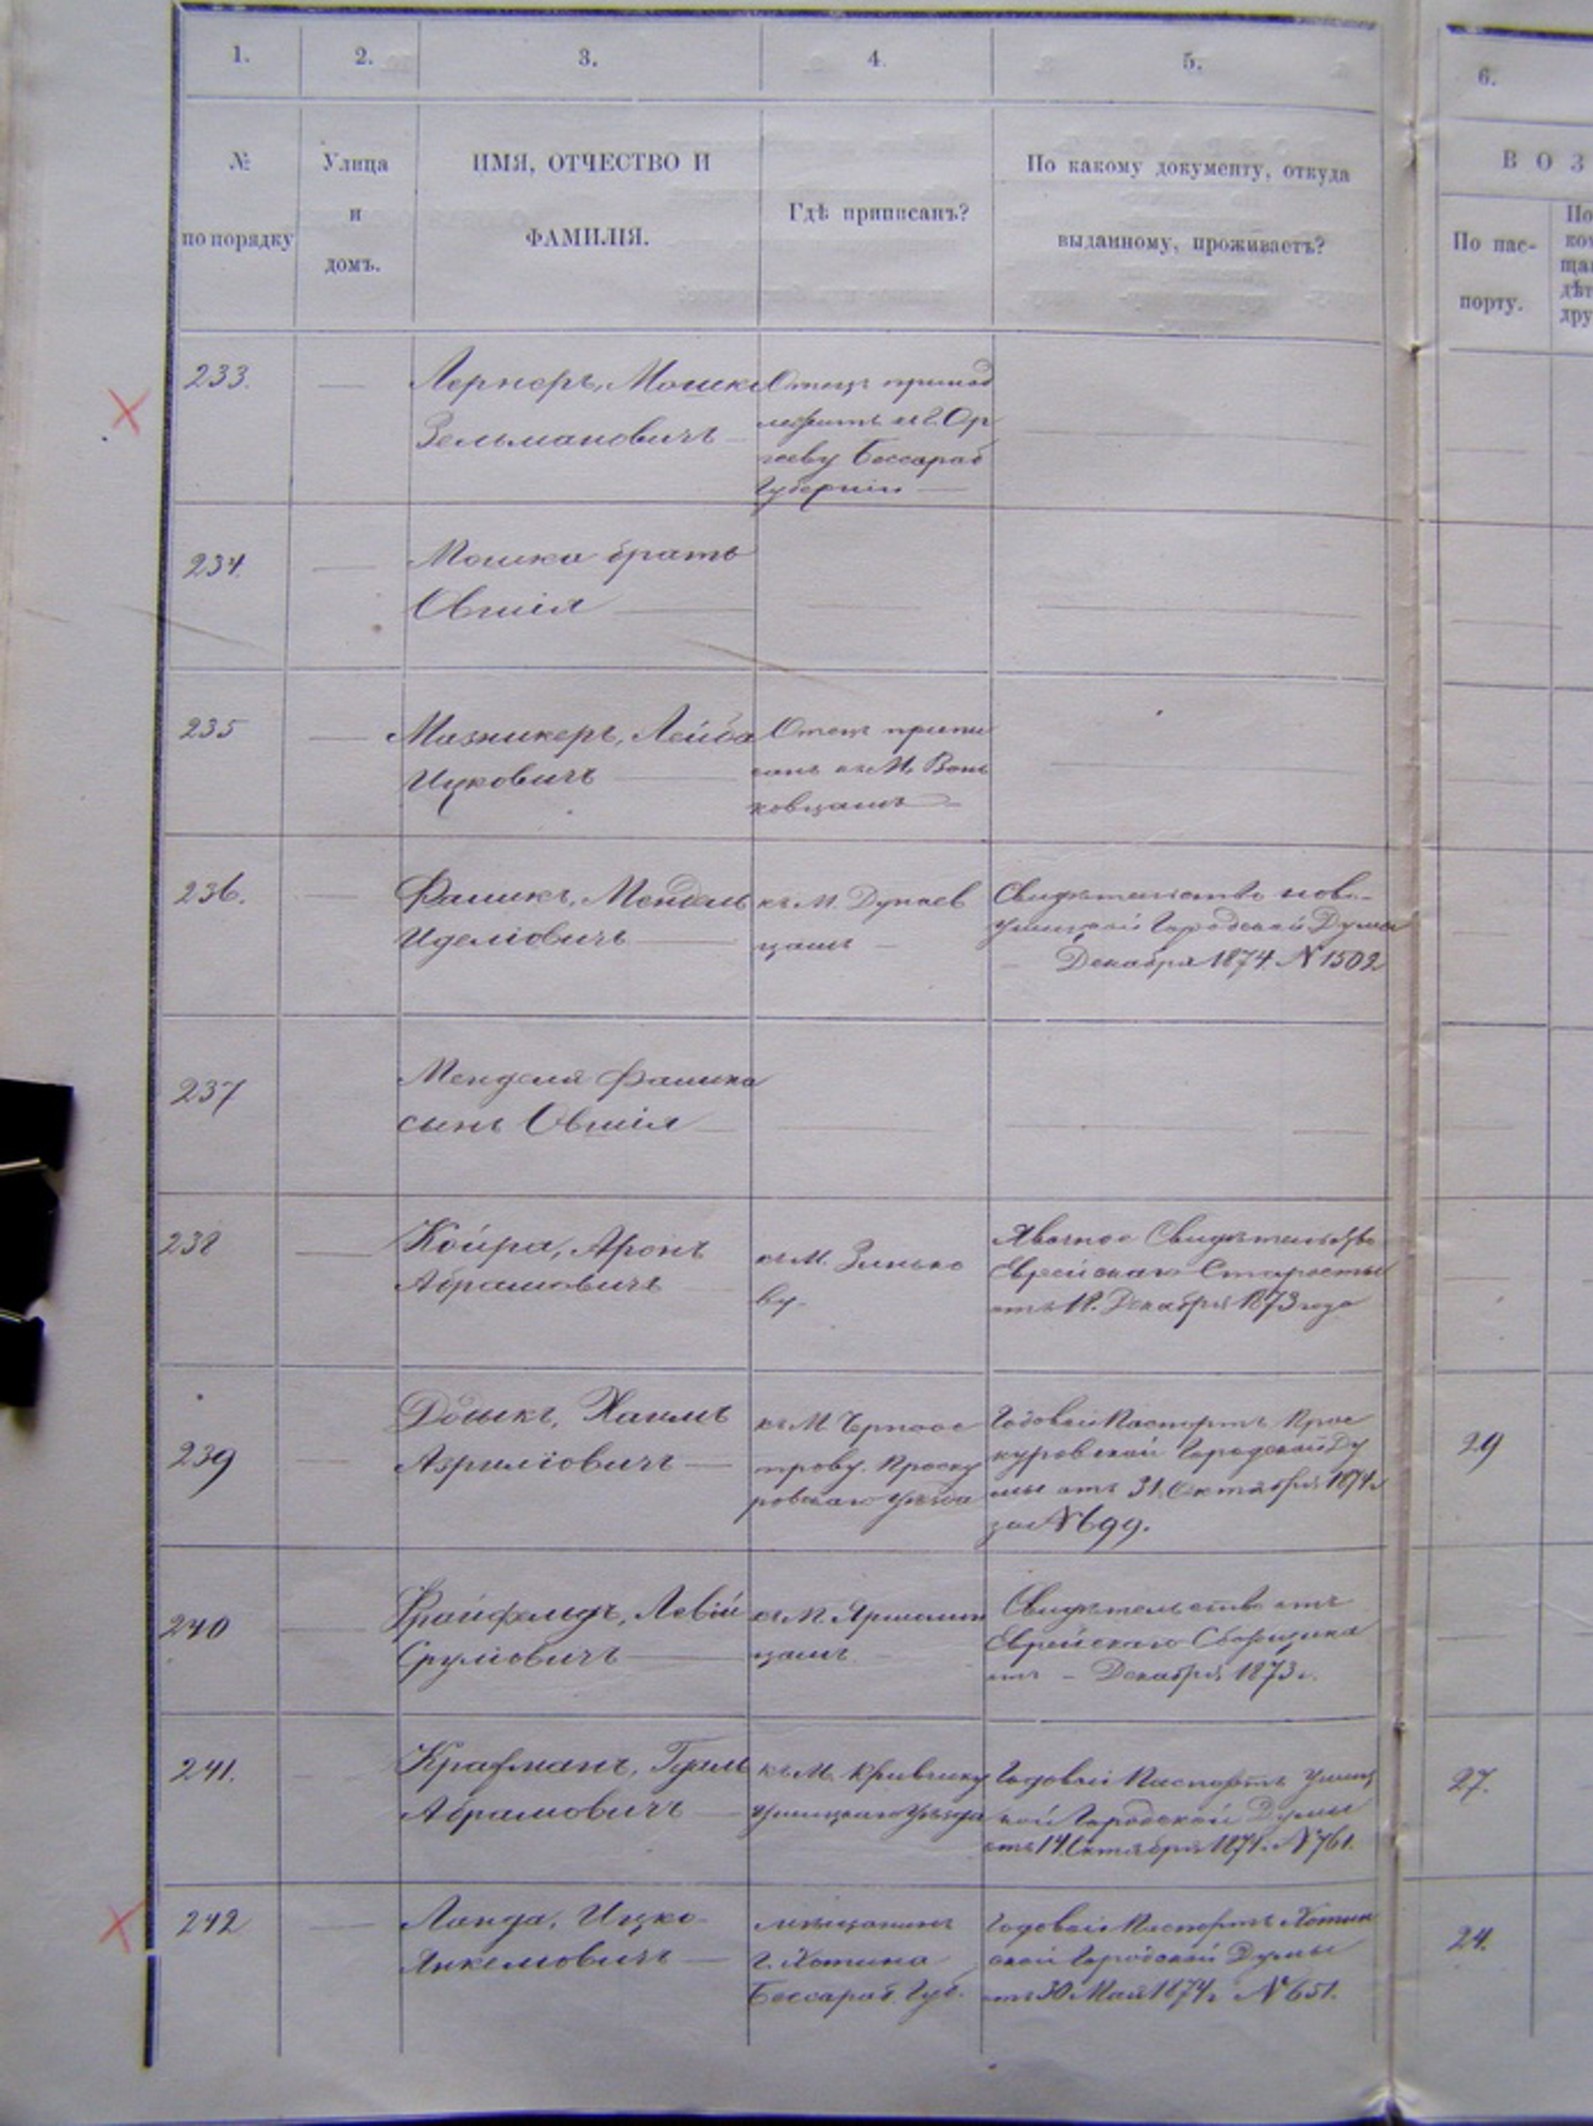 1.
2.
3.
4.
5.
6.
№
по порядку
Улица
и
домъ.
ИМЯ, ОТЧЕСТВО И
ФАМИЛІЯ.
Гдѣ приписанъ?
По какому документу, откуда
выданному, проживаетъ?
ВОЗ
По пас-
порту.
По
ко
ща
дѣт
дру
233.
Лернеръ, Мошко
Зельмановичъ
Отецъ принад
лежитъ къ г. Ор
гееву Бессараб
Губерніи
234.
Мошка братъ
Овшія
235
Мазникеръ, Лейба
Ицковичъ
Отецъ припи
санъ къ М. Вонь
ковцамъ
236.
Фашикъ, Мендель
Иделіовичъ
къ М. Дунаев
цамъ
Свидѣтельство ново-
ушицкой Городской Думы
Декабря 1874. N 1509
237
Менделя Фашика
сынъ Овшія
238
Койра, Аронъ
Абрамовичъ
къ М. Зинько
ву.
Явочное Свидѣтельство
Еврейскаго Старосты
отъ 18. Декабря 1873 года
239
Дошкъ, Хаимъ
Азриліовичъ
къ М. Черноос
трову. Проску
ровскаго уѣзда
Годовой Паспортъ Прос
куровской Городской Ду
мы отъ 31 Октября 1874 г
за N 699.
29
240
Фрайфельдъ, Левій
Сруліовичъ
къ М. Ярмолин
цамъ.
Свидѣтельство отъ
Еврейскаго Сборщика
отъ - Декабря 1873 г.
241.
Крафманъ, Гдаль
Абрамовичъ
къ М. Кривчику
Ушицкаго Уѣзда
Годовой Паспортъ Ушиц
кой Городской Думы
отъ 14 Октября 1874 г. N 761.
27.
242
Ланда, Ицко-
Янкеліовичъ
мѣщанинъ
г. Хотина
Бессараб. Губ.
Годовой Паспортъ Хотин
ской Городской Думы
отъ 30 Мая 1874 г N 651.
24.